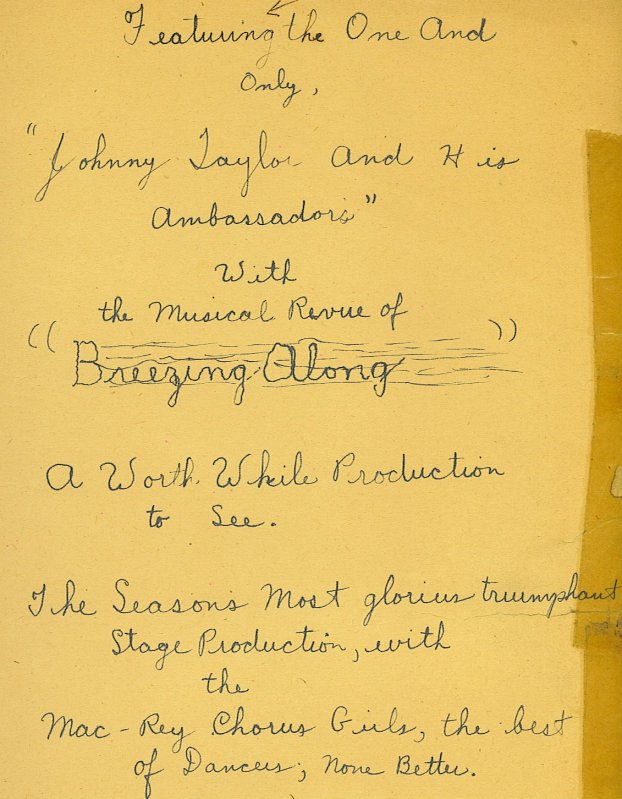 Featuring the One And
Only,
"Johnny Taylor And His
Ambassadors"
With
the Musical Revue of
((Breezing Along))
A Worth While Production
to See.
The Seasons Most glorius triumphant
Stage Production, with
the
Mac-Rey Chorus Girls, the best
of Dancers; None Better.